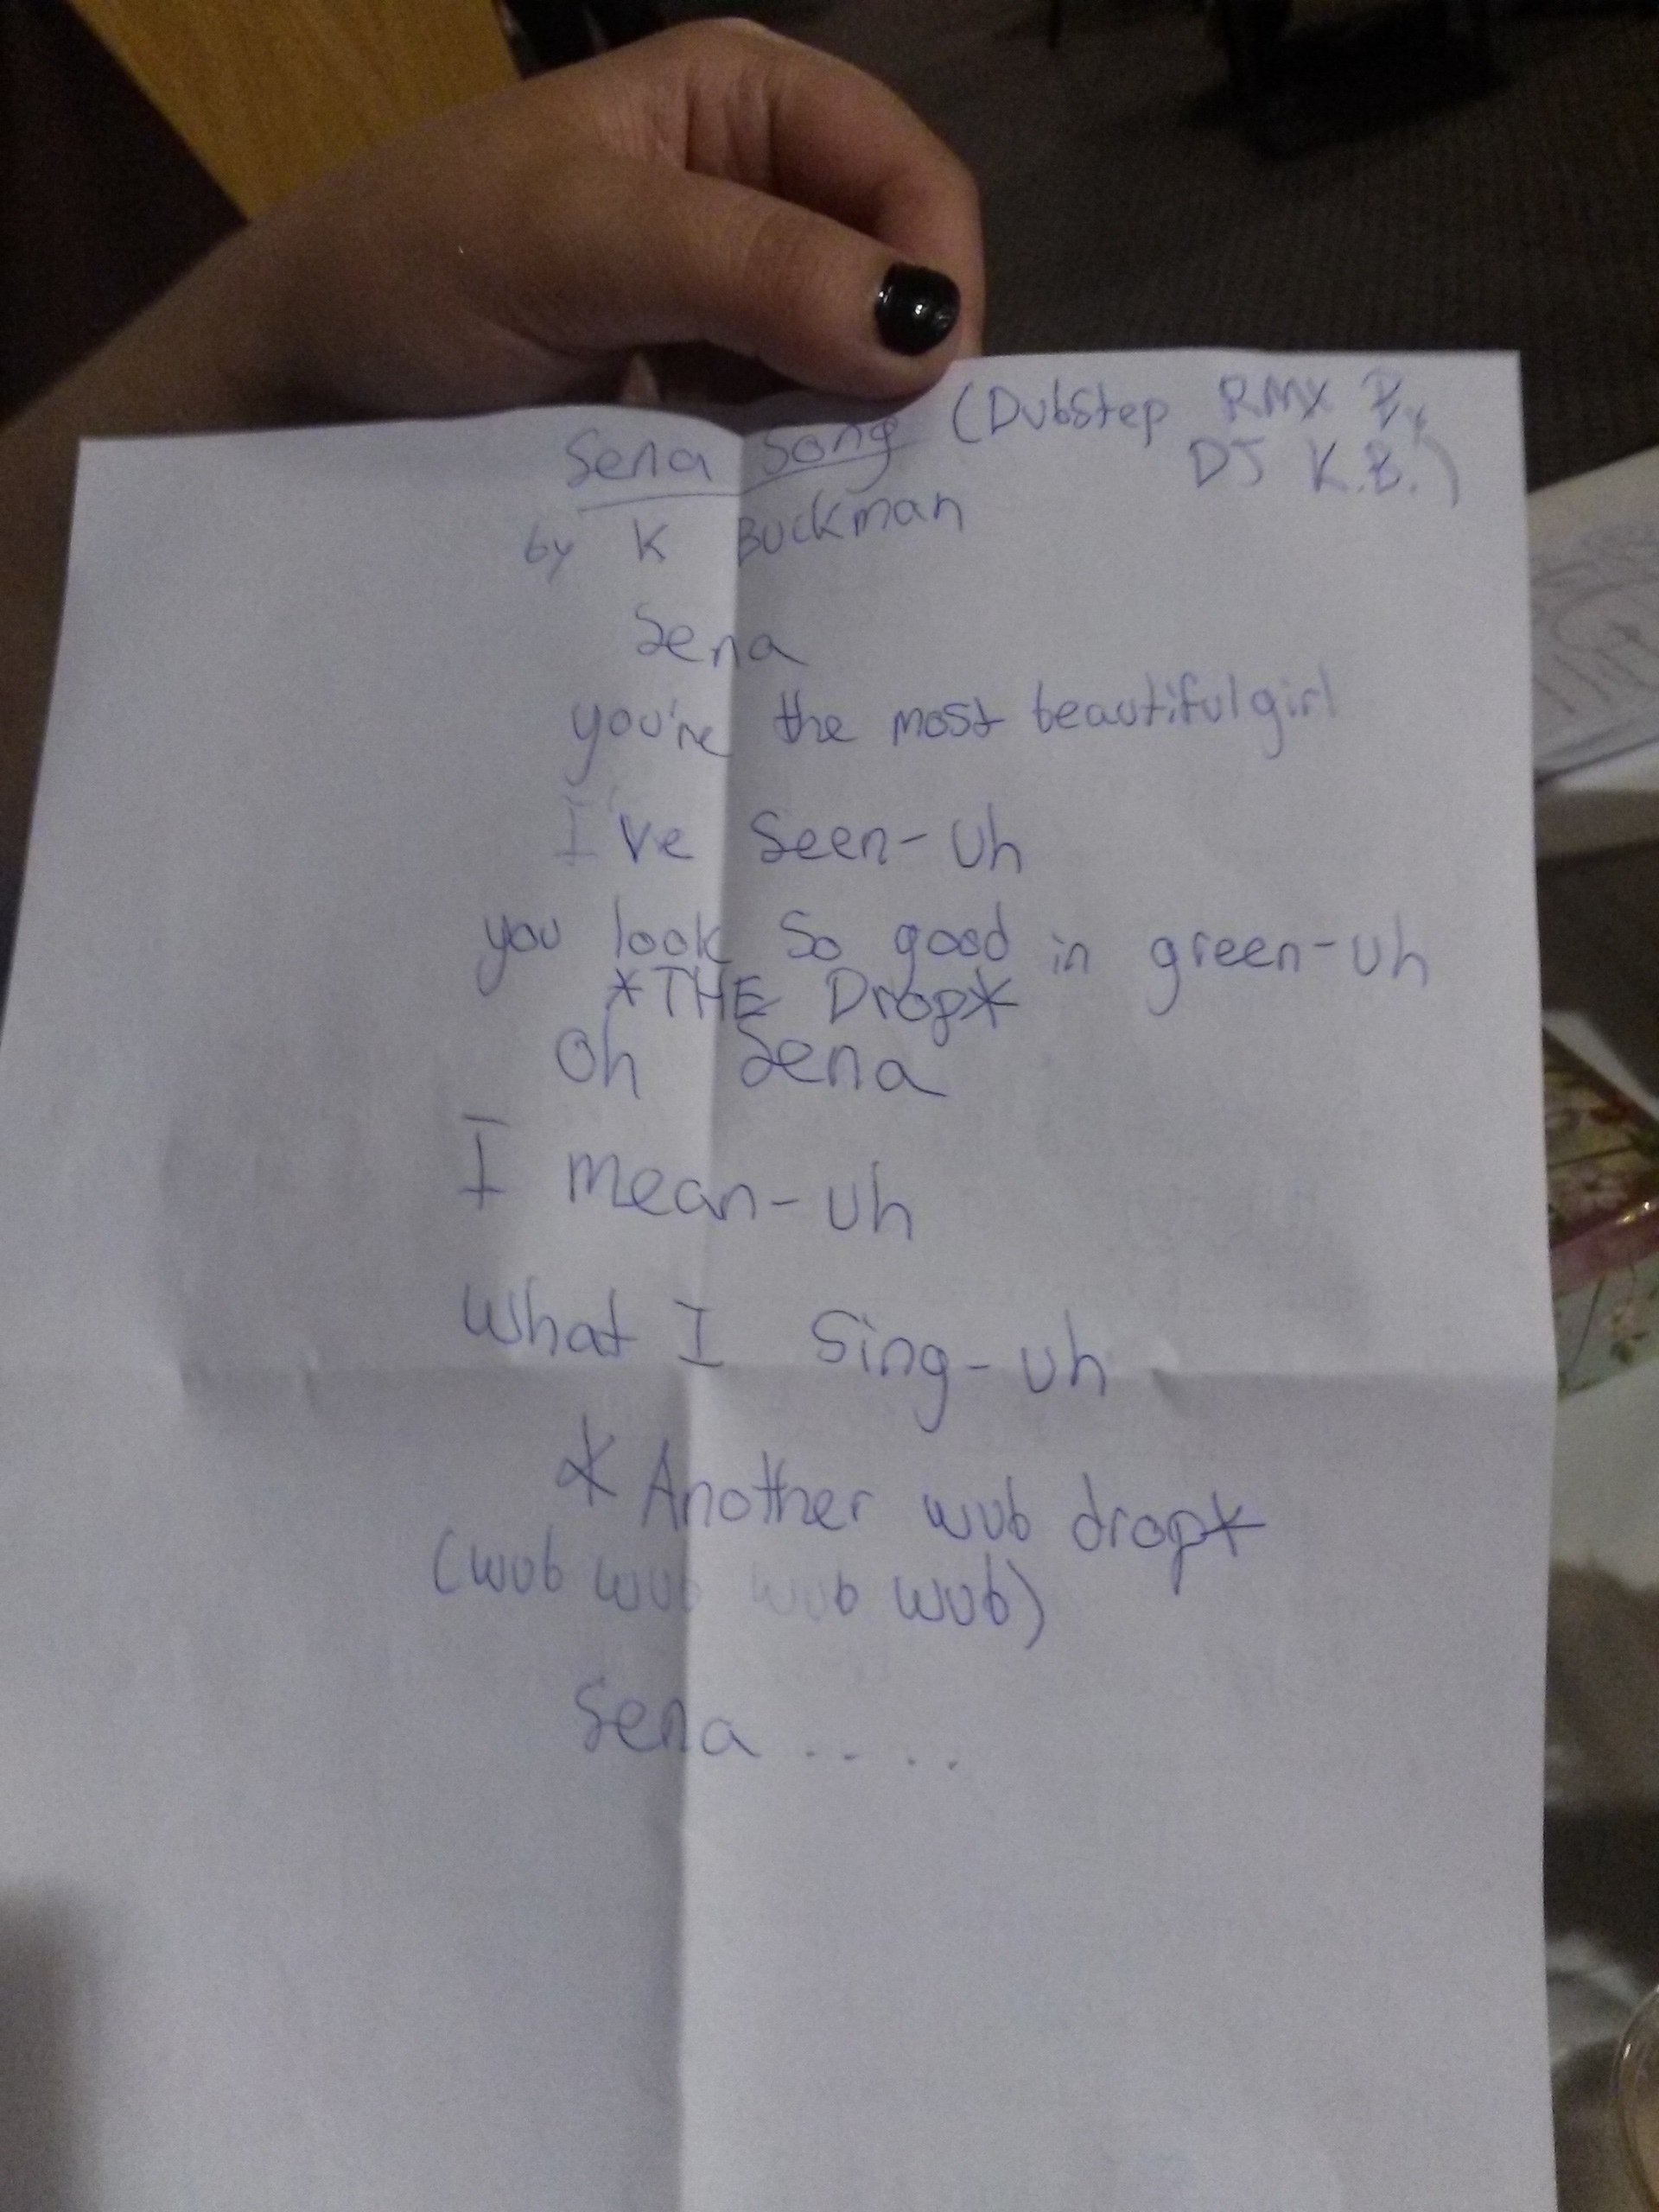 Sena Song (Dubstep RMX By
DJ K.B.)
by K Buckman
Sena
you're the most beautiful girl
I've seen-uh
you look so good in green-uh
*THE Drop*
Oh Sena
I mean-uh
what I sing-uh
*Another wub drop*
(wub wub wub wub)
Sena ....